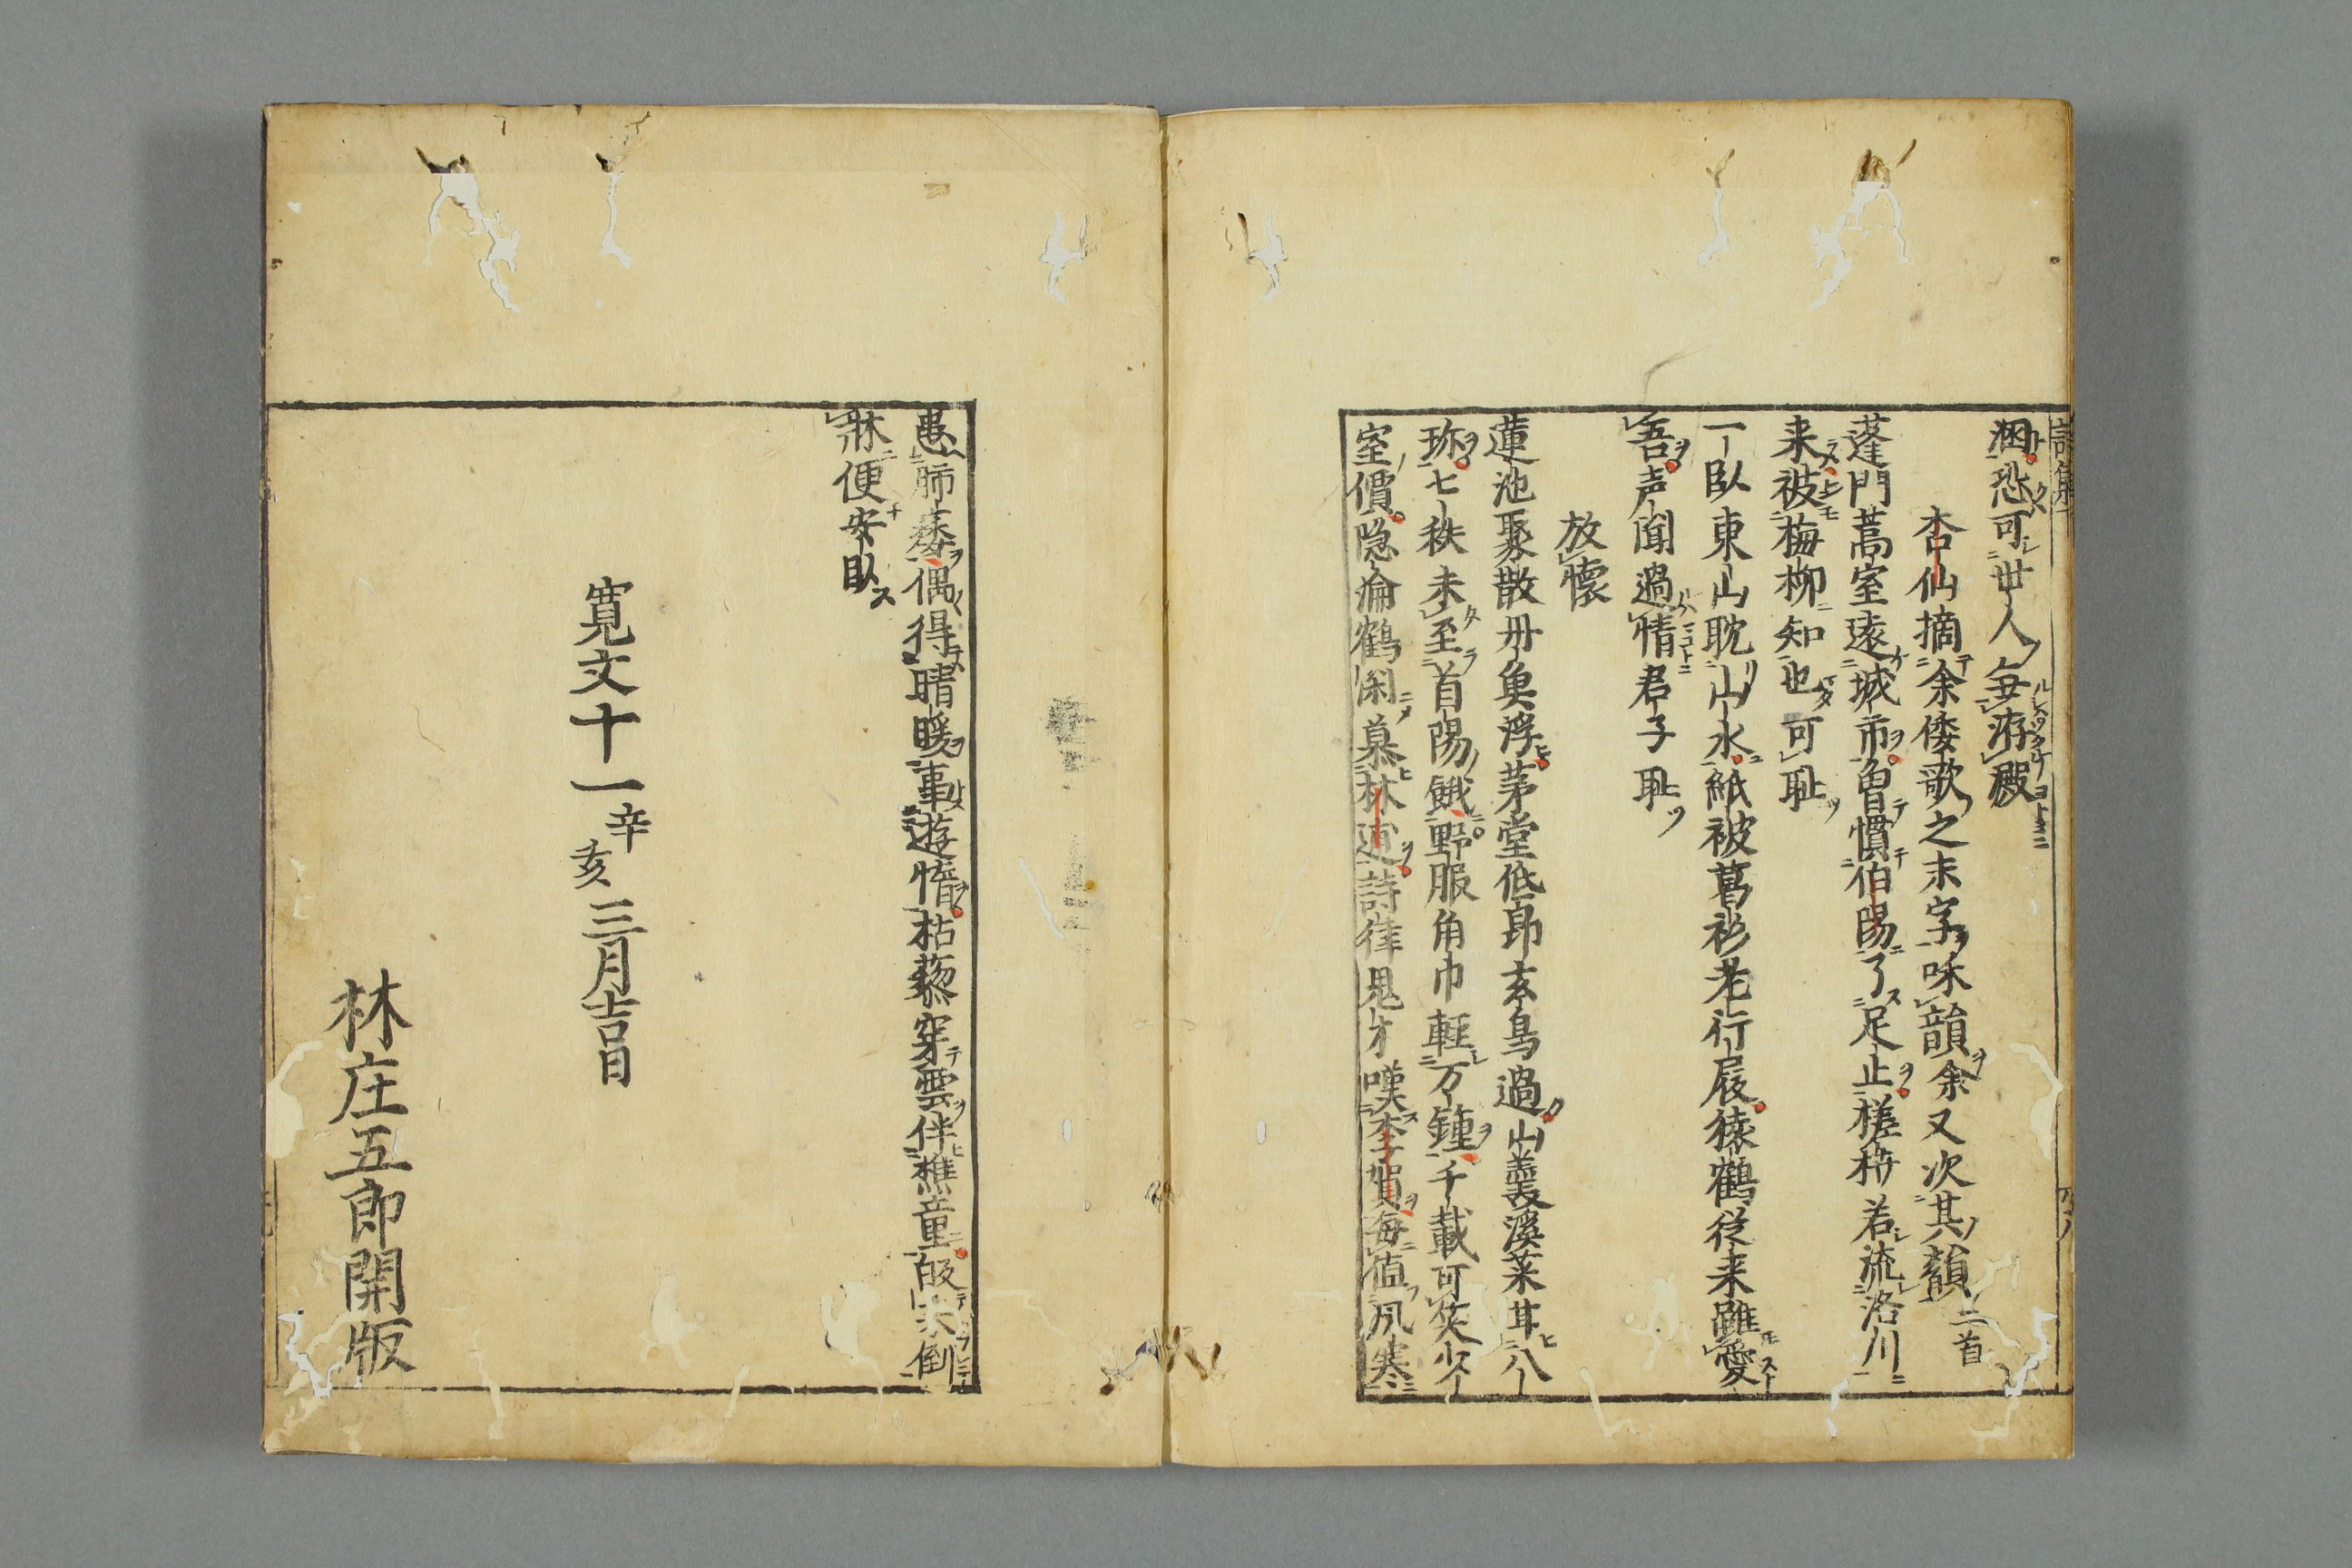 溷恐可世人毎游殿
杏仙摘余倭歌之末字咊韻余又次其韻二首
蓬門蒿室遠城市曽慣伯陽了足止槎枿若流洛川
来被梅柳知也可耻
一臥東山耽山水紙被葛衫老行屐猿鶴従来雖愛
吾声聞過情君子耻
放懐
蓮池聚散丹魚浮茅堂低昂玄鳥過山羹溪菜甘八
珎七秩未至首陽餓野服角巾輕万鍾千載可笑少
室價隐淪鶴閑慕林逋詩律鬼才嘆李賀海值夙寒
愚肺痿偶得晴暖事遊惰枯藜穿雲伴樵童皈来倒
牀便安臥
寛文十一辛亥三月吉日
林庄五郎開版